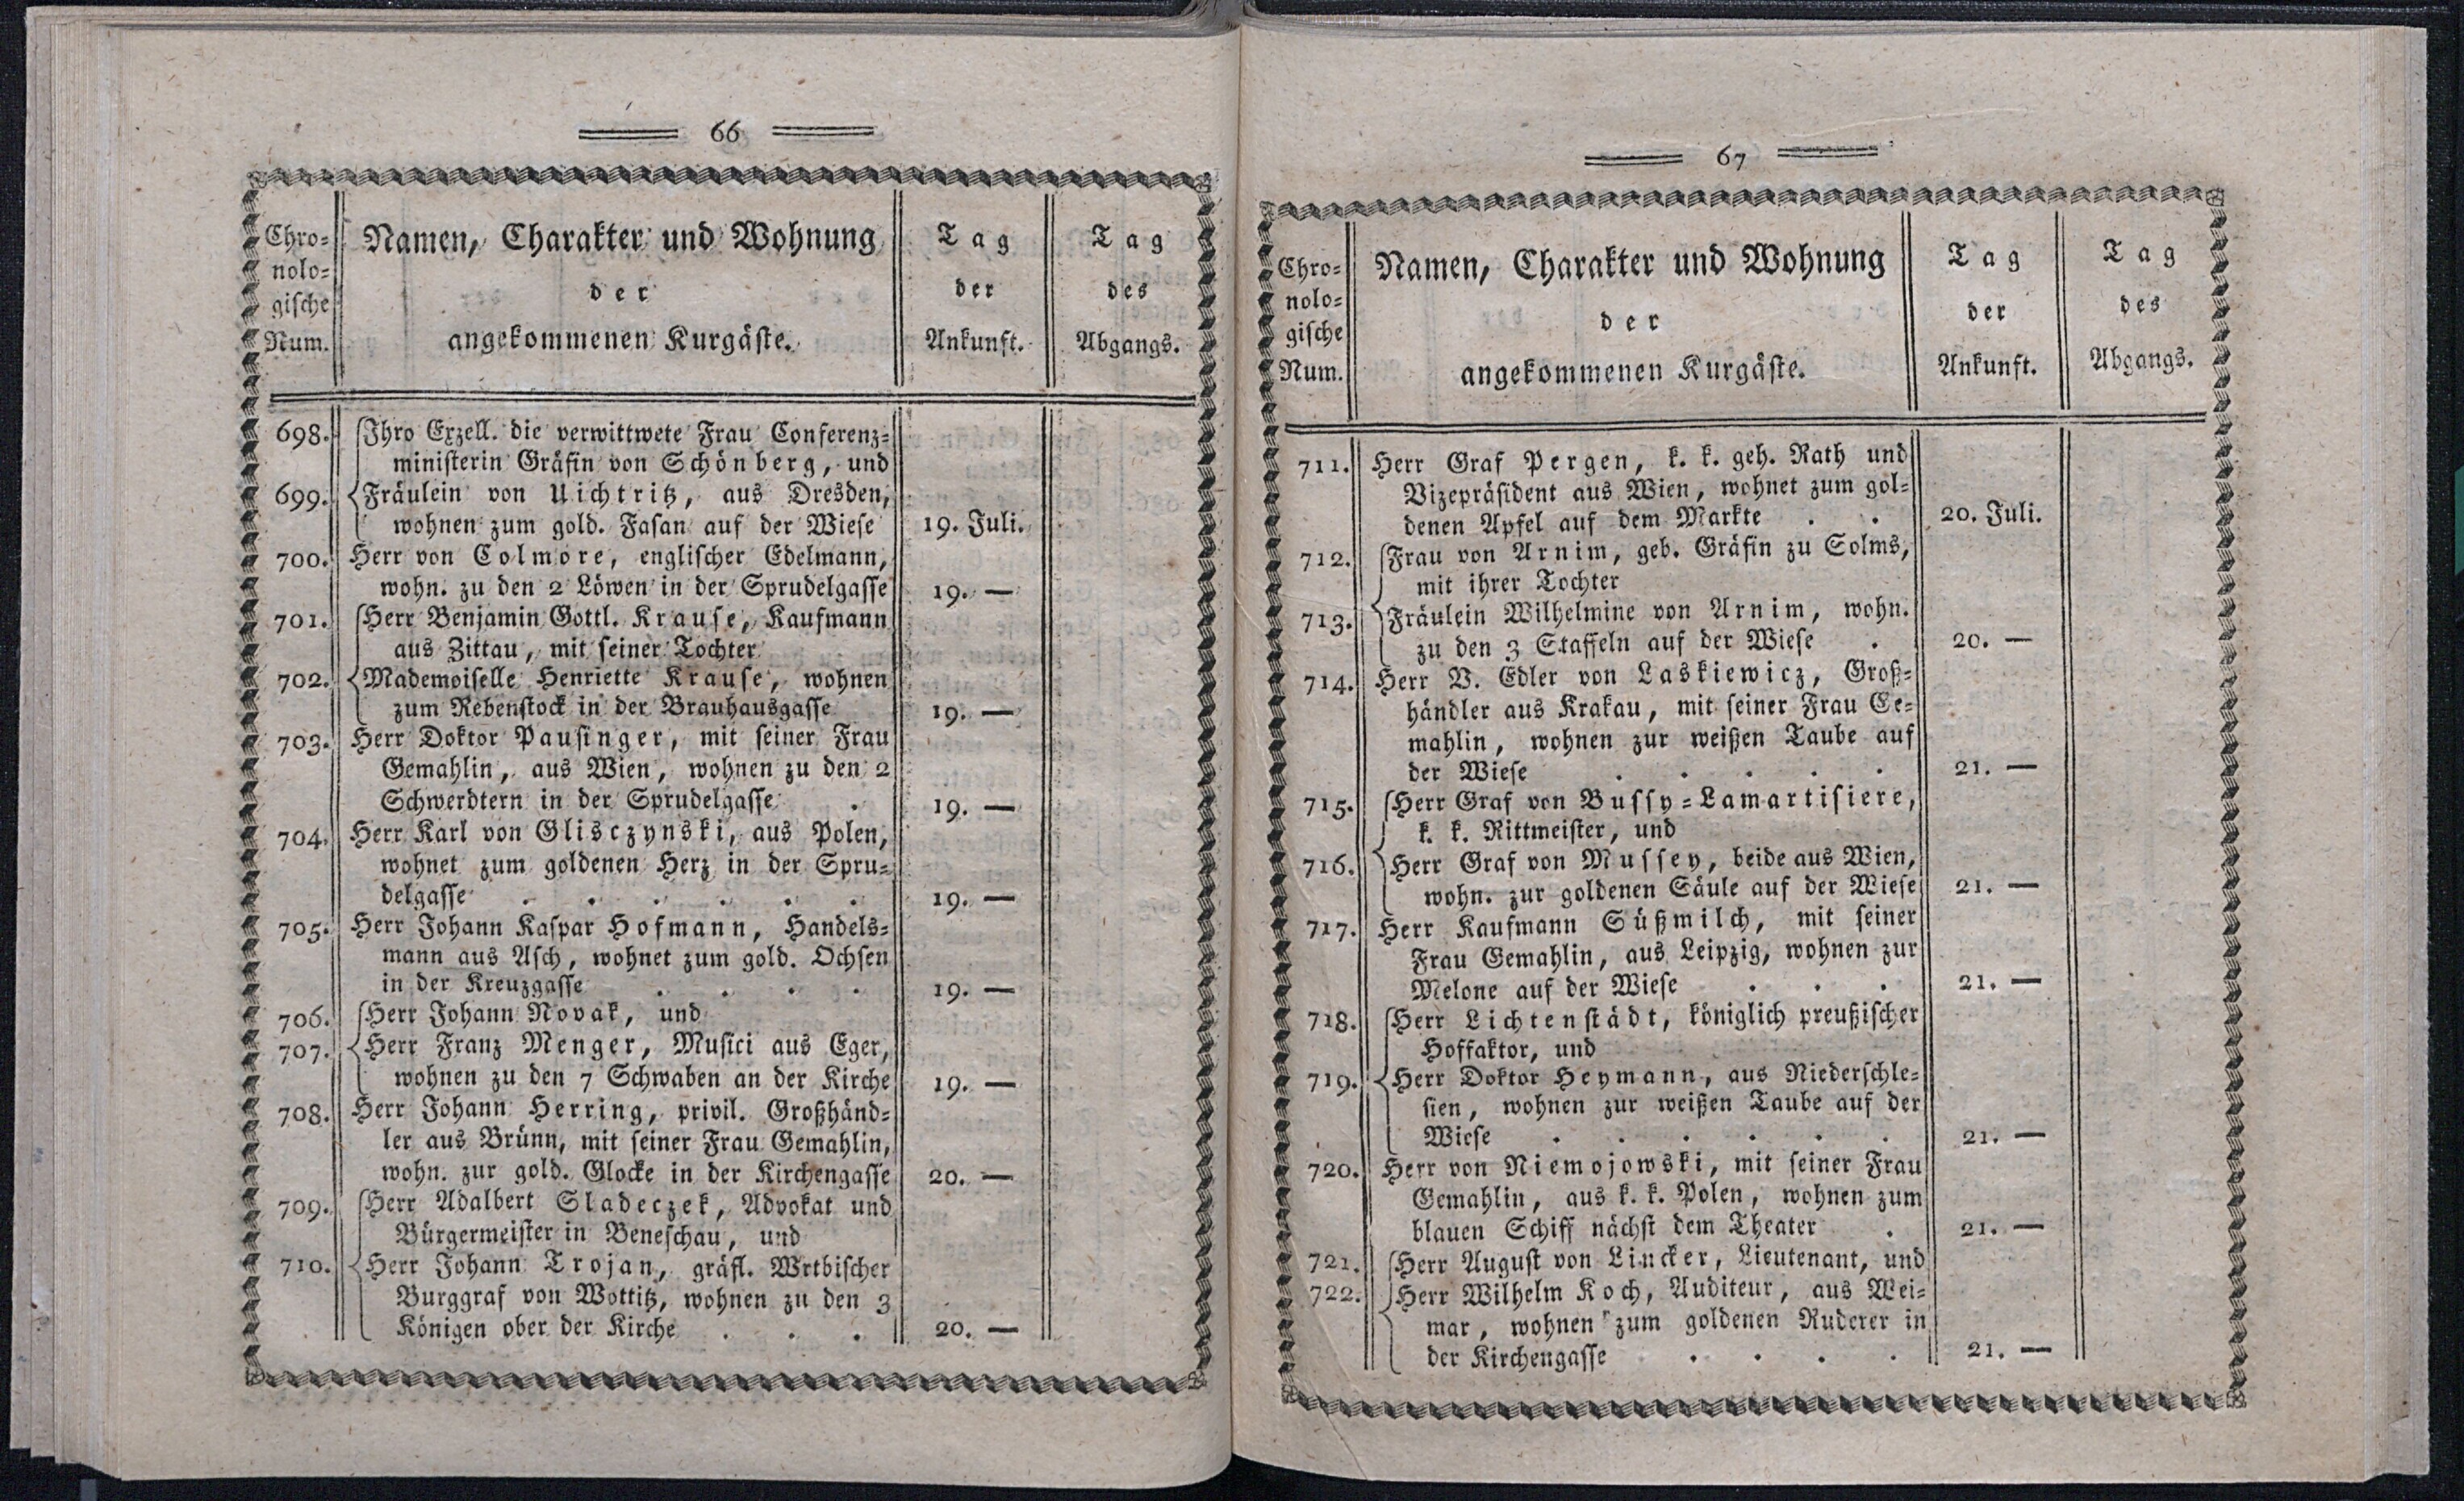 66
Chro-
nolo-
gische
Num.
Namen, Charakter und Wohnung
der
angekommenen Kurgäste.
Tag
der
Ankunft.
Tag
des
Abgangs.
698. Ihro Exzell. die verwittwete Frau Conferenz-
ministerin Gräfin von Schönberg, und
699. Fräulein von Uichtritz, aus Dresden,
wohnen zum gold. Fasan auf der Wiese 19. Juli.
700. Herr von Colmore, englischer Edelmann,
wohn. zu den 2 Löwen in der Sprudelgasse 19. —
701. Herr Benjamin Gottl. Krause, Kaufmann
aus Zittau, mit seiner Tochter
702. Mademoiselle Henriette Krause, wohnen
zum Rebenstock in der Brauhausgasse 19. —
703. Herr Doktor Pausinger, mit seiner Frau
Gemahlin, aus Wien, wohnen zu den 2
Schwerdtern in der Sprudelgasse . 19. —
704. Herr Karl von Glisczynski, aus Polen,
wohnet zum goldenen Herz in der Spru-
delgasse . . . . . . 19. —
705. Herr Johann Kaspar Hofmann, Handels-
mann aus Asch, wohnet zum gold. Ochsen
in der Kreuzgasse . . . . 19. —
706. Herr Johann Novak, und
707. Herr Franz Menger, Musici aus Eger,
wohnen zu den 7 Schwaben an der Kirche 19. —
708. Herr Johann Herring, privil. Großhänd-
ler aus Brünn, mit seiner Frau Gemahlin,
wohn. zur gold. Glocke in der Kirchengasse 20. —
709. Herr Adalbert Sladeczek, Advokat und
Bürgermeister in Beneschau, und
710. Herr Johann Trojan, gräfl. Wrtbischer
Burggraf von Wottitz, wohnen zu den 3
Königen ober der Kirche . . . 20. —
67
Chro-
nolo-
gische
Num.
Namen, Charakter und Wohnung
der
angekommenen Kurgäste.
Tag
der
Ankunft.
Tag
des
Abgangs.
711. Herr Graf Pergen, k. k. geh. Rath und
Vizepräsident aus Wien, wohnet zum gol-
denen Apfel auf dem Markte . . 20. Juli.
712. Frau von Arnim, geb. Gräfin zu Solms,
mit ihrer Tochter
713. Fräulein Wilhelmine von Arnim, wohn.
zu den 3 Staffeln auf der Wiese . 20. —
714. Herr V. Edler von Laskiewicz, Groß-
händler aus Krakau, mit seiner Frau Ge-
mahlin, wohnen zur weißen Taube auf
der Wiese . . . . . 21. —
715. Herr Graf von Bussy-Lamartisiere,
k. k. Rittmeister, und
716. Herr Graf von Mussey, beide aus Wien,
wohn. zur goldenen Säule auf der Wiese 21. —
717. Herr Kaufmann Süßmilch, mit seiner
Frau Gemahlin, aus Leipzig, wohnen zur
Melone auf der Wiese . . . 21. —
718. Herr Lichtenstädt, königlich preußischer
Hoffaktor, und
719. Herr Doktor Heymann, aus Niederschle-
sien, wohnen zur weißen Taube auf der
Wiese . . . . . . 21. —
720. Herr von Niemojowski, mit seiner Frau
Gemahlin, aus k. k. Polen, wohnen zum
blauen Schiff nächst dem Theater . 21. —
721. Herr August von Lincker, Lieutenant, und
722. Herr Wilhelm Koch, Auditeur, aus Wei-
mar, wohnen zum goldenen Ruderer in
der Kirchengasse . . . . 21. —